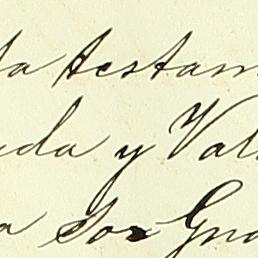 la testam
uda y Val
a sor Gua